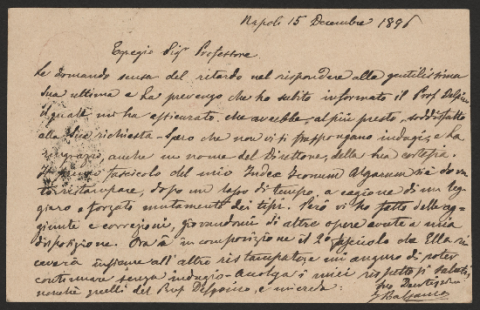 Napoli 15 Dicembre 1896
Egregio Sigr Professore
Le domando scusa del ritardo nel rispondere alla gentilissima
sua ultima e La prevengo che ho subito informato il Prof Delpino
il quale mi ha assicurato, che avrebbe, al più presto, soddisfatto
alla Sua richiesta - Spero che non vi si frappongano indugi, e La
ringrazio, anche in nome del Direttore, della Sua cortesia.
Il primo fascicolo del mio Index Iconum Algarum si è dovuto
ristampare, dopo un lasso di tempo, a cagione di un leg-
giero e forzato mutamento dei tipi. Però vi ho fatto delle ag-
giunte e correzioni, giovandomi di altre opere avute a mia
disposizione. Ora è in composizione il 2o fascicolo da Ella ri-
ceverà insieme all'altro ristampato, e mi auguro di poter
continuare senza indugio - Accolga i miei rispetti e saluti,
nonchè quelli del Prof Delpino, e mi creda:
suo Devotissimo